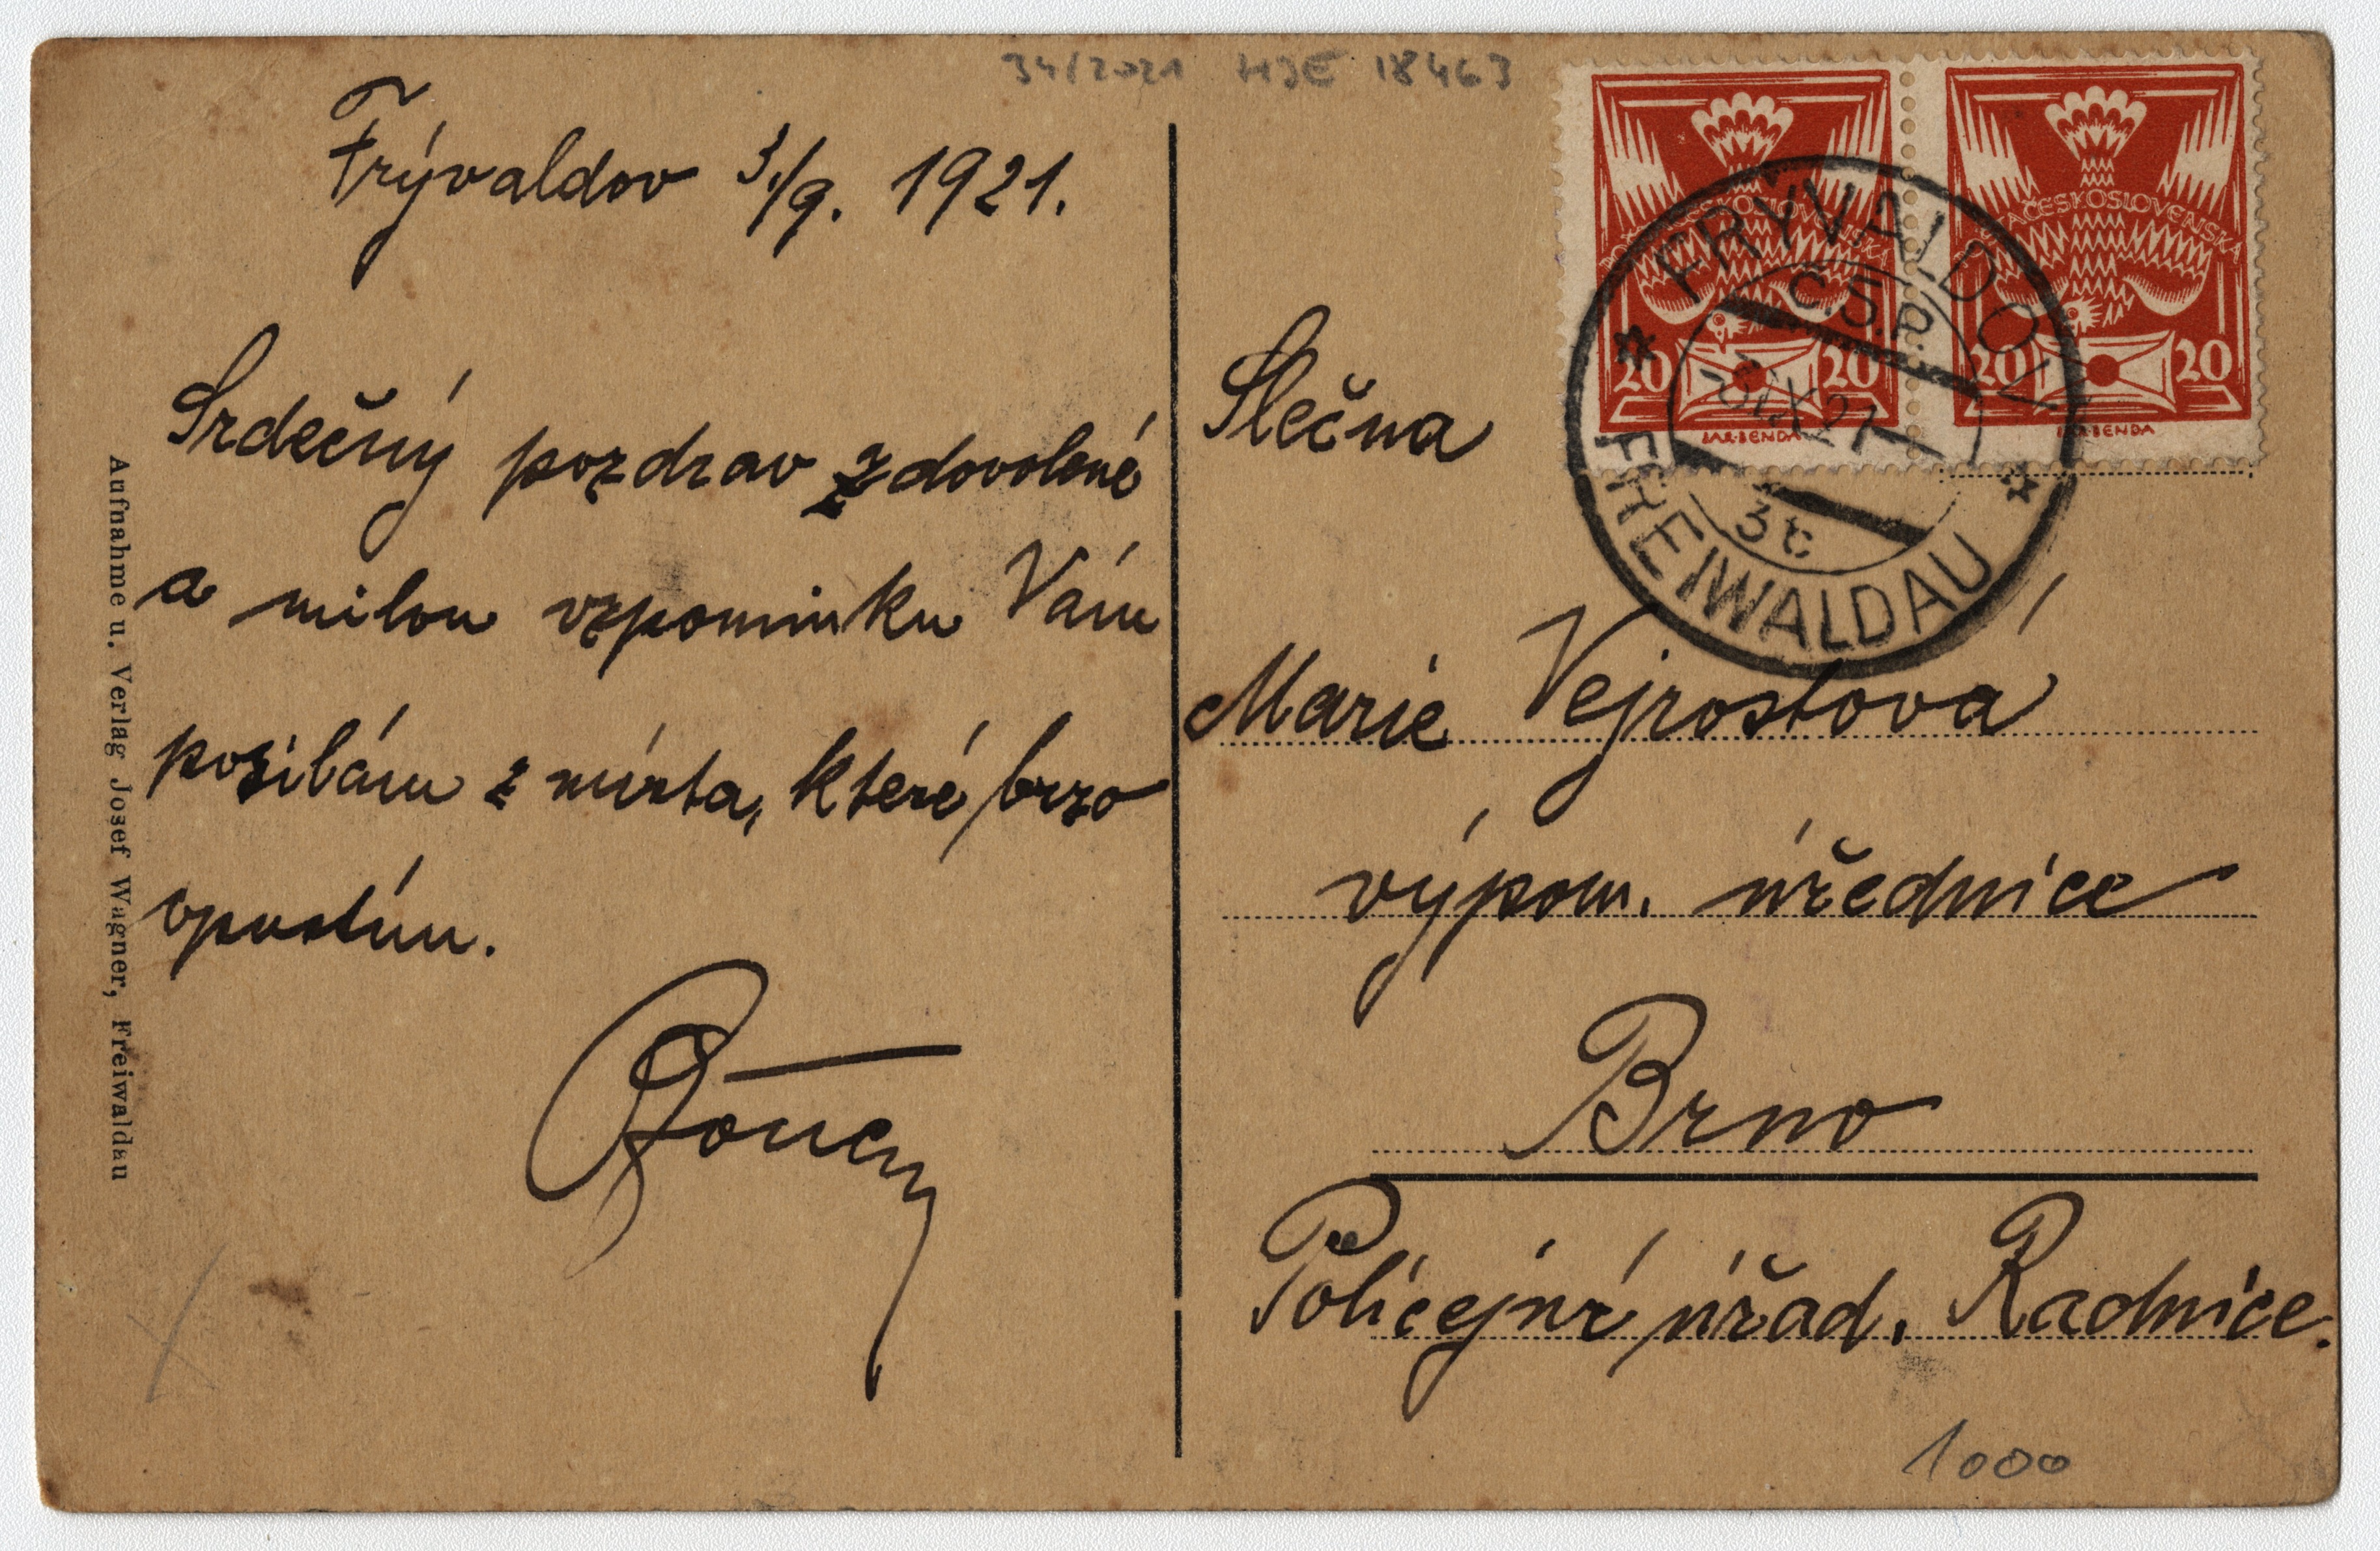 34/2021 HJE 18463
Frývaldov 3./9. 1921.
Srdečný pozdrav z dovolené
a milou vzpomínku Vám
posilám z místa, které brzo
opustím.
Aufnahme u. Verlag Josef Wagner, Freiwaldau
POŠTA ČESKOSLOVENSKÁ
20 20
JAR. BENDA
POŠTA ČESKOSLOVENSKÁ
20 20
JAR. BENDA
FRÝVALDOV
Č.S.P.
-3.IX.21
3c
FREIWALDAU
Slečna
Marie Vejrostová
výpom. úřednice
Brno
Policejní úřad, Radnice.
1000